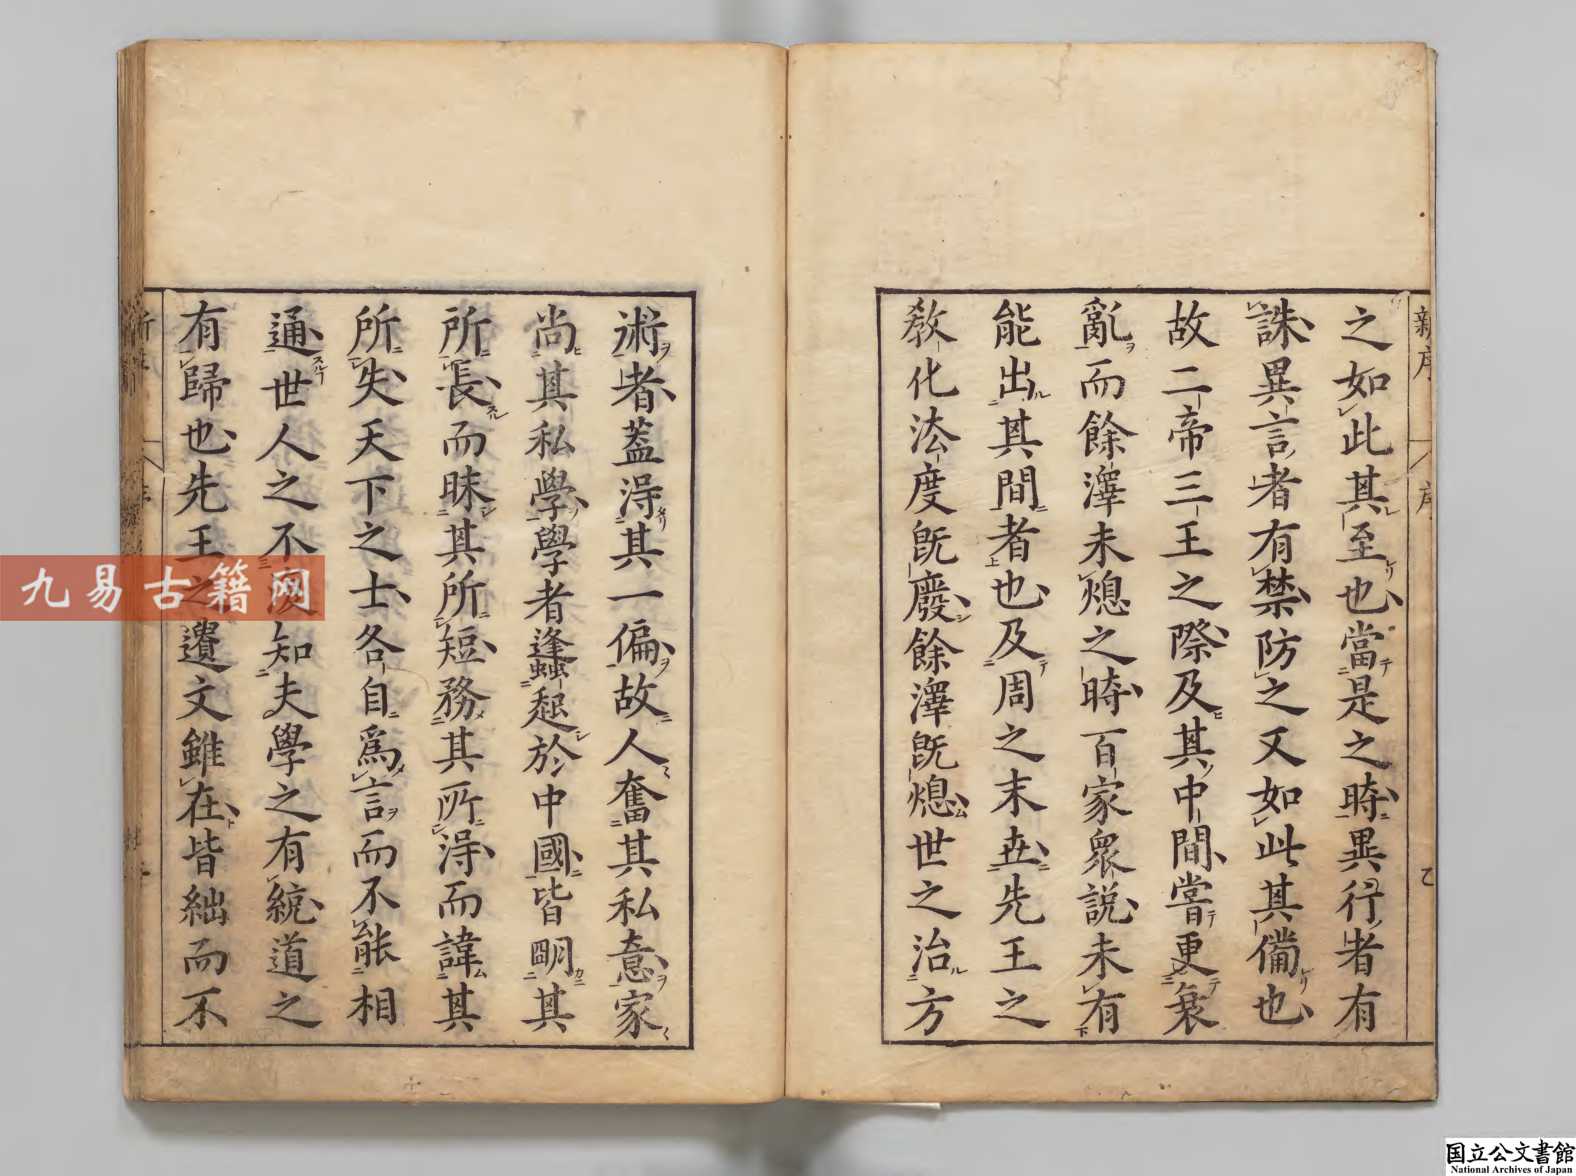 新序
序
之如此其至也當是之時異行者有
誅異言者有禁防之又如此其備也
故二帝三王之際及其中間嘗更衰
亂而餘澤未熄之時百家衆說未有
能出其間者也及周之末世先王之
教化法度既廢餘澤既熄世之治方
術者蓋淂其一偏故人奮其私意家
尚其私學學者蜂起於中國皆明其
所長而昧其所短務其所淂而諱其
所失天下之士各自爲言而不能相
通世人之不復知夫學之有統道之
有歸也先王之遺文雖在皆絀而不
九易古籍网
国立公文書館
National Archives of Japan